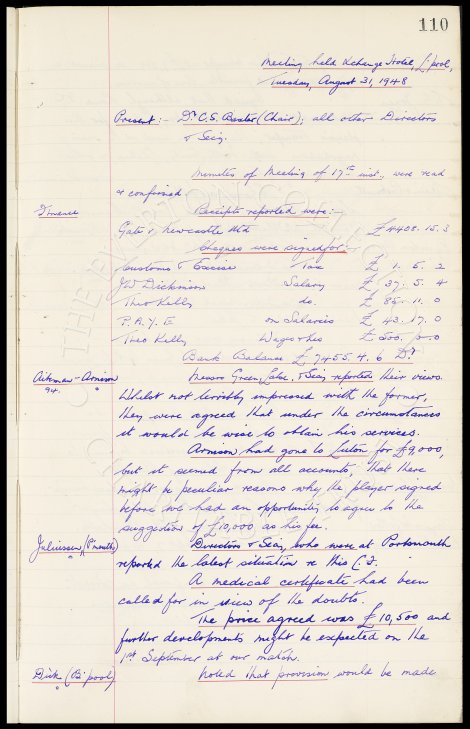 110
Meeting held Xchange Hotel, L'pool,
Tuesday, August 31, 1948
Present:- Dr. C.S. Baxter (Chair); all other Directors
& Secy.
Minutes of Meeting of 17th inst., were read
& confirmed.
Finance Receipts reported were:-
Gate v. Newcastle Utd £4408.15.3
Cheques were signed for:-
Customs & Excise Tax £ 1. 5. 2
JW Dickinson Salary £ 37. 5. 4
Theo Kelly do. £ 85. 11. 0
P.A.Y.E on Salaries £ 43. 17. 0
Theo Kelly Wages & Xes £ 500. 0. 0
Bank Balance £7455. 4. 6 Dr.
Aitkman - Arnison Messrs Green, Sabe, & Secy reported their views.
94. Whilst not terribly impressed with the former,
they were agreed that under the circumstances
it would be wise to obtain his services.
Arnison had gone to Luton for £9,000,
but it seemed from all accounts, that there
might be peculiar reasons why the player signed
before we had an opportunity to agree to the
suggestion of £10,000 as his fee.
Juliussen, (P'mouth) Directors & Secy, who were at Portsmouth
reported the latest situation re this C.F.
A medical certificate had been
called for in view of the doubts.
The price agreed was £10,500 and
further developments might be expected on the
1st September at our match.
Dick (B'pool) Noted that provision would be made